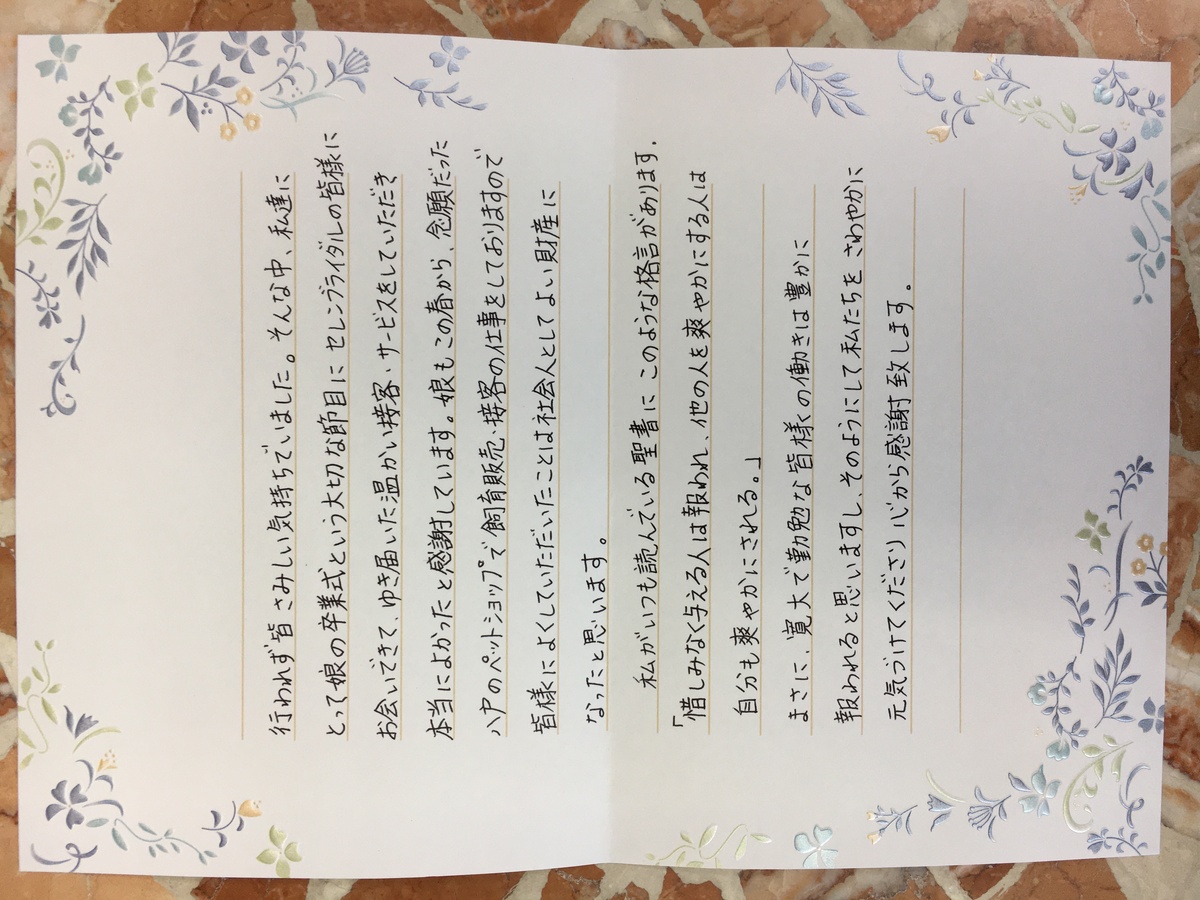 行われず皆さみしい気持ちでいました。そんな中、私達に
とって娘の卒業式という大切な節目に セレンブライダルの皆様に
お会いできて、ゆき届いた温かい接客・サービスをしていただき
本当によかったと感謝しています。娘もこの春から、念願だった
八戸のペットショップで飼育販売・接客の仕事をしておりますので
皆様によくしていただいたことは社会人としてよい財産に
なったと思います。
私がいつも読んでいる聖書に このような格言があります.
「惜しみなく与える人は報われ、他の人を爽やかにする人は
自分も爽やかにされる。」
まさに、寛大で勤勉な皆様の働きは豊かに
報われると思いますし、そのようにして私たちを さわやかに
元気づけてくださり心から感謝致します。